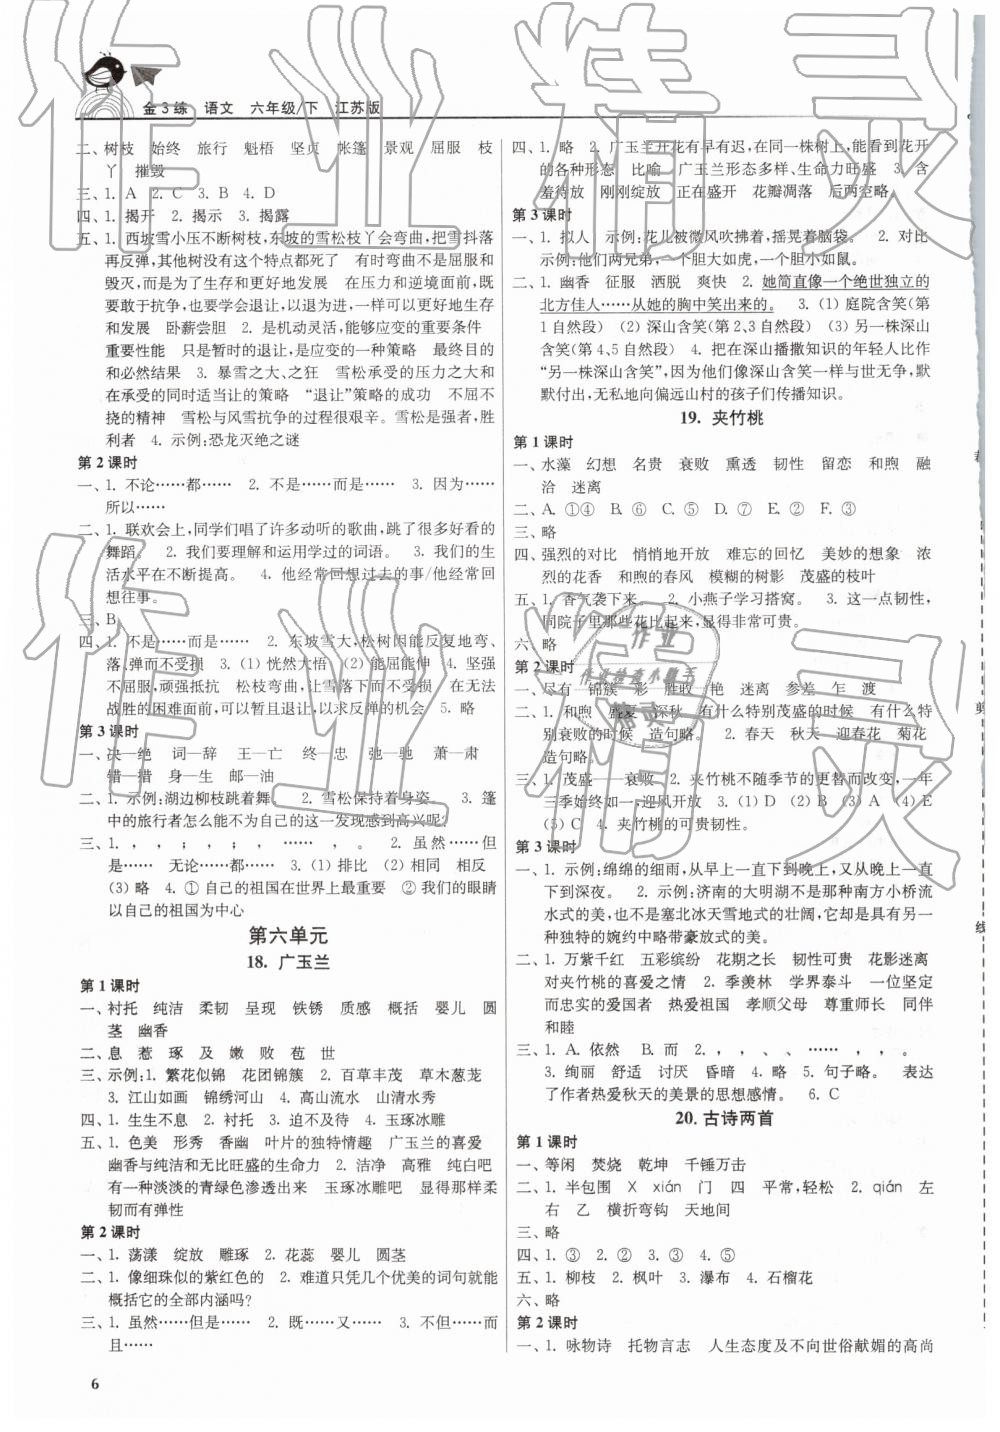 金3练 语文 六年级/下 江苏版
二、树枝 始终 旅行 魁梧 坚贞 帐篷 景观 屈服 枝
丫 摧毁
三、1. A 2. C 3. B 4. D
四、1. 揭开 2. 揭示 3. 揭露
五、1. 西坡雪小压不断树枝,东坡的雪松枝丫会弯曲,把雪抖落
再反弹,其他树没有这个特点都死了 有时弯曲不是屈服和
毁灭,而是为了生存和更好地发展 在压力和逆境面前,既
要敢于抗争,也要学会退让,以退为进,一样可以更好地生存
和发展 卧薪尝胆 2. 是机动灵活,能够应变的重要条件
重要性能 只是暂时的退让,是应变的一种策略 最终目的
和必然结果 3. 暴雪之大、之狂 雪松承受的压力之大和
在承受的同时适当让的策略 “退让”策略的成功 不屈不
挠的精神 雪松与风雪抗争的过程很艰辛。雪松是强者,胜
利者 4. 示例:恐龙灭绝之谜
第 2 课时
一、1. 不论……都…… 2. 不是……而是…… 3. 因为……
所以……
二、1. 联欢会上,同学们唱了许多动听的歌曲,跳了很多好看的
舞蹈。 2. 我们要理解和运用学过的词语。 3. 我们的生
活水平在不断提高。 4. 他经常回想过去的事/他经常回
想往事。
三、B
四、1. 不是……而是…… 2. 东坡雪大,松树因能反复地弯、
落、弹而不受损 3. (1) 恍然大悟 (2) 能屈能伸 4. 坚强
不屈,顽强抵抗 松枝弯曲,让雪落下而不受损 在无法
战胜的困难面前,可以暂且退让,以求反弹的机会 5. 略
第 3 课时
一、决—绝 词—辞 王—亡 终—忠 弛—驰 萧—肃
错—措 身—生 邮—油
二、1. 示例:湖边柳枝跳着舞。 2. 雪松保持着身姿。 3. 篷
中的旅行者怎么能不为自己的这一发现感到高兴呢?
三、1. , , ; , ; , …… , 。 2. 虽然……但
是…… 无论……都…… 3. (1) 排比 (2) 相同 相反
(3) 略 4. ① 自己的祖国在世界上最重要 ② 我们的眼睛
以自己的祖国为中心
第六单元
18. 广玉兰
第 1 课时
一、衬托 纯洁 柔韧 呈现 铁锈 质感 概括 婴儿 圆
茎 幽香
二、息 惹 琢 及 嫩 败 苞 世
三、示例:1. 繁花似锦 花团锦簇 2. 百草丰茂 草木葱茏
3. 江山如画 锦绣河山 4. 山清水秀
四、1. 生生不息 2. 衬托 3. 迫不及待 4. 玉琢冰雕
五、1. 色美 形秀 香幽 叶片的独特情趣 广玉兰的喜爱
幽香与纯洁和无比旺盛的生命力 2. 洁净 高雅 纯白吧
有一种淡淡的青绿色渗透出来 玉琢冰雕吧 显得那样柔
韧而有弹性
第 2 课时
一、1. 荡漾 绽放 雕琢 2. 花蕊 婴儿 圆茎
二、1. 像细珠似的紫红色的 2. 难道只凭几个优美的词句就能
概括它的全部内涵吗?
三、1. 虽然……但是…… 2. 既……又…… 3. 不但……而
且……
四、1. 略 2. 广玉兰开花有早有迟,在同一株树上,能看到花开
的各种形态 比喻 广玉兰形态多样、生命力旺盛 3. 含
羞待放 刚刚绽放 正在盛开 花瓣凋落 后两空略。
第 3 课时
一、1. 拟人 示例:花儿被微风吹拂着,摇晃着脑袋。 2. 对比
示例:他们两兄弟,一个胆大如虎,一个胆小如鼠。
二、1. 幽香 征服 洒脱 爽快 2. 她简直像一个绝世独立的
北方佳人……从她的胸中笑出来的。 3. (1) 庭院含笑(第
1自然段) (2) 深山含笑(第2、3自然段) (3) 另一株深山
含笑(第4、5自然段) 4. 把在深山播撒知识的年轻人比作
“另一株深山含笑”,因为他们像深山含笑一样与世无争,默
默开放,无私地向偏远山村的孩子们传播知识。
19. 夹竹桃
第 1 课时
一、水藻 幻想 名贵 衰败 熏透 韧性 留恋 和煦 融
洽 迷离
二、A. ①④ B. ⑥ C. ⑤ D. ⑦ E. ② F. ③
三、略
四、强烈的对比 悄悄地开放 难忘的回忆 美妙的想象 浓
烈的花香 和煦的春风 模糊的树影 茂盛的枝叶
五、1. 香气袭下来。 2. 小燕子学习搭窝。 3. 这一点韧性,
同院子里那些花比起来,显得非常可贵。
六、略
第 2 课时
一、尽有 锦簇 彩 胜收 艳 迷离 参差 乍 渡
二、1. 和煦 盛夏 深秋 有什么特别茂盛的时候 有什么特
别衰败的时候 造句略。 2. 春天 秋天 迎春花 菊花
造句略。
三、1. 茂盛——衰败 2. 夹竹桃不随季节的更替而改变,一年
三季始终如一,迎风开放 3. (1) D (2) B (3) A (4) E
(5) C 4. 夹竹桃的可贵韧性。
第 3 课时
一、1. 示例:绵绵的细雨,从早上一直下到晚上,又从晚上一直
下到深夜。 2. 示例:济南的大明湖不是那种南方小桥流
水式的美,也不是塞北冰天雪地式的壮阔,它得承认是另
一种独特的婉约中略带豪放式的美。
二、1. 万紫千红 五彩缤纷 花期之长 韧性可贵 花影迷离
对夹竹桃的喜爱之情 2. 季羡林 学界泰斗 一位坚定
而忠实的爱国者 热爱祖国 孝顺父母 尊重师长 同伴
和睦
三、1. A. 依然 B. 而 2. , , 、 、 …… , , 。
3. 绚丽 舒适 讨厌 昏暗 4. 略 5. 句子略。 表达
了作者热爱秋天的美景的思想感情。 6. C
20. 古诗两首
第 1 课时
一、等闲 焚烧 乾坤 千锤万击
二、1. 半包围 X xián 门 四 平常,轻松 2. qián 左
右 乙 横折弯钩 天地间
三、略
四、1. ③ 2. ② 3. ③ 4. ⑤
五、1. 柳枝 2. 枫叶 3. 瀑布 4. 石榴花
六、略
第 2 课时
一、1. 咏物诗 托物言志 人生态度及不向世俗献媚的高尚
6
作业精灵
作业精灵
剪
线